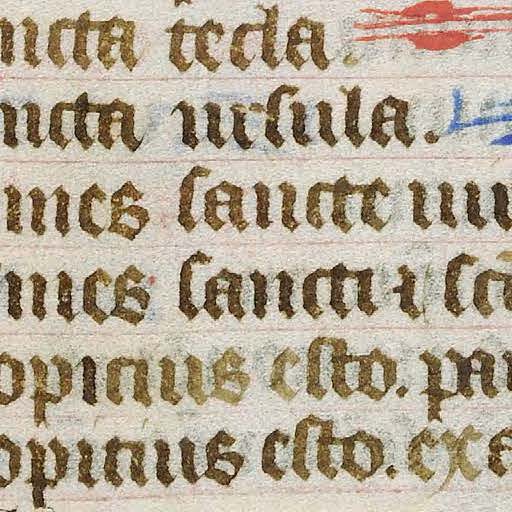 ncta tecla.
ncta ursula.
mnes sancte
mnes sancti ⁊ scā
opicius esto. par
opitius esto. exa